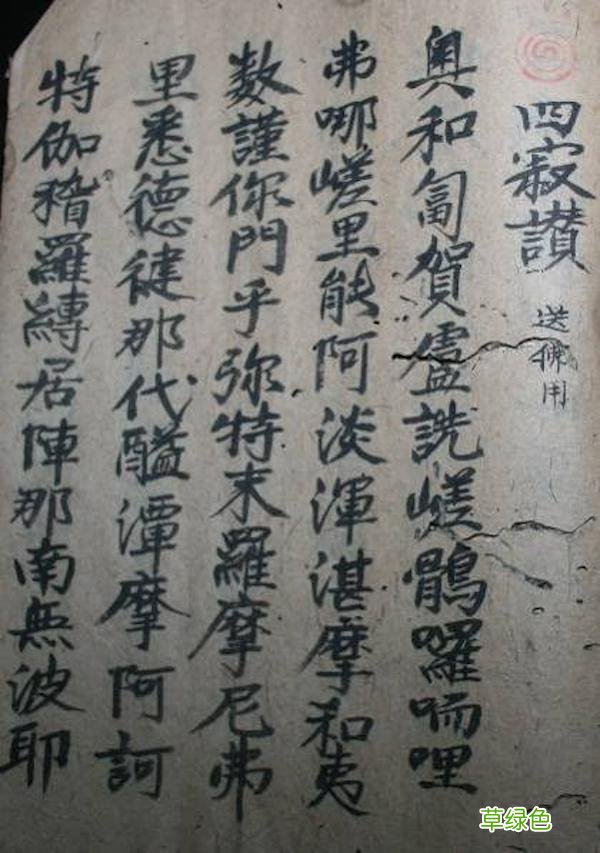 四寂讃 送佛用
奥和匐賀盧詵嵯鶻囉哩
弗哪嵯里能阿淡渾湛摩和夷
数謹你門乎弥特末羅摩尼弗
里悉德徤那代醯潭摩阿訶
特伽稽羅縛居陣那南無波耶
草绿色